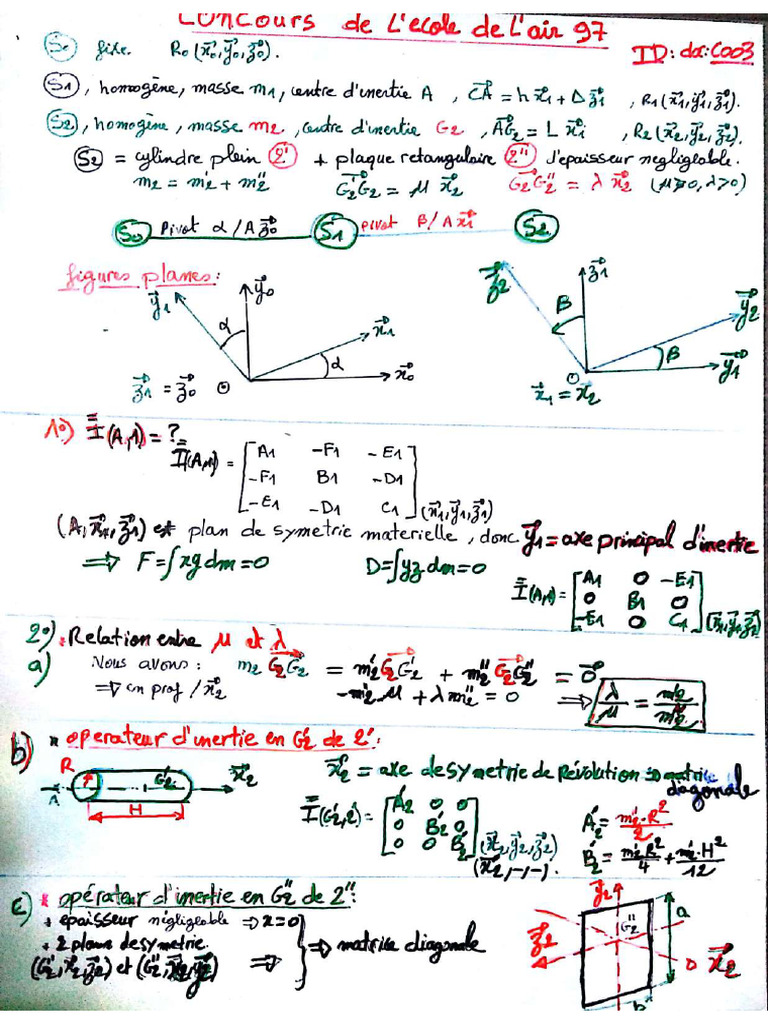 CONCOURS de L'ecole de L'air 97
S0 fixe R0(x0,y0,z0).
TD: dx: C003
S1, homogène, masse m1, centre d'inertie A , CA = h x1 + Δ z1 , R1(x1,y1,z1).
S2, homogène, masse m2, centre d'inertie G2 , AG2 = L x1 , R2(x2,y2,z2).
S2 = cylindre plein 2' + plaque retangulaire 2" d'epaisseur negligeable.
m2 = m'2 + m"2 G'2G2 = μ x2 G2G"2 = λ x2 (μ>0, λ>0)
S0 Pivot α/Az0 S1 pivot β/Ax1 S2
figures planes:
y1 y0 α x1 α x0 z1 = z0
z2 z1 β y2 β y1 x1 = x2
1°) I(A,1) = ?
I(A,1) = [A1 -F1 -E1
-F1 B1 -D1
-E1 -D1 C1] (x1,y1,z1)
(A,x1,z1) est plan de symetrie materielle, donc y1 = axe principal d'inertie
⇒ F = ∫xydm = 0 D = ∫yzdm = 0
I(A,1) = [A1 0 -E1
0 B1 0
-E1 0 C1] (x1,y1,z1)
2°) Relation entre μ et λ
a) Nous avons: m2 G2G2 = m'2 G2G'2 + m"2 G2G"2 = 0
⇒ en proj /x2 -m'2 μ + λ m"2 = 0 ⇒ λ/μ = m'2/m"2
b) * operateur d'inertie en G'2 de 2':
R G'2 x2 A H
x2 = axe de symetrie de Révolution ⇒ matrice diagonale
I(G'2,2') = [A'2 0 0
0 B'2 0
0 0 B'2] (x2,y2,z2)
(x2,-,-)
A'2 = m'2·R²/2
B'2 = m'2R²/4 + m'2·H²/12
c) * opérateur d'inertie en G"2 de 2":
+ epaisseur négligeable ⇒ x=0
+ 2 plans de symetrie
(G"2,x2,z2) et (G"2,x2,y2) ⇒
⇒ matrice diagonale
y2 G"2 a z2 x2 b